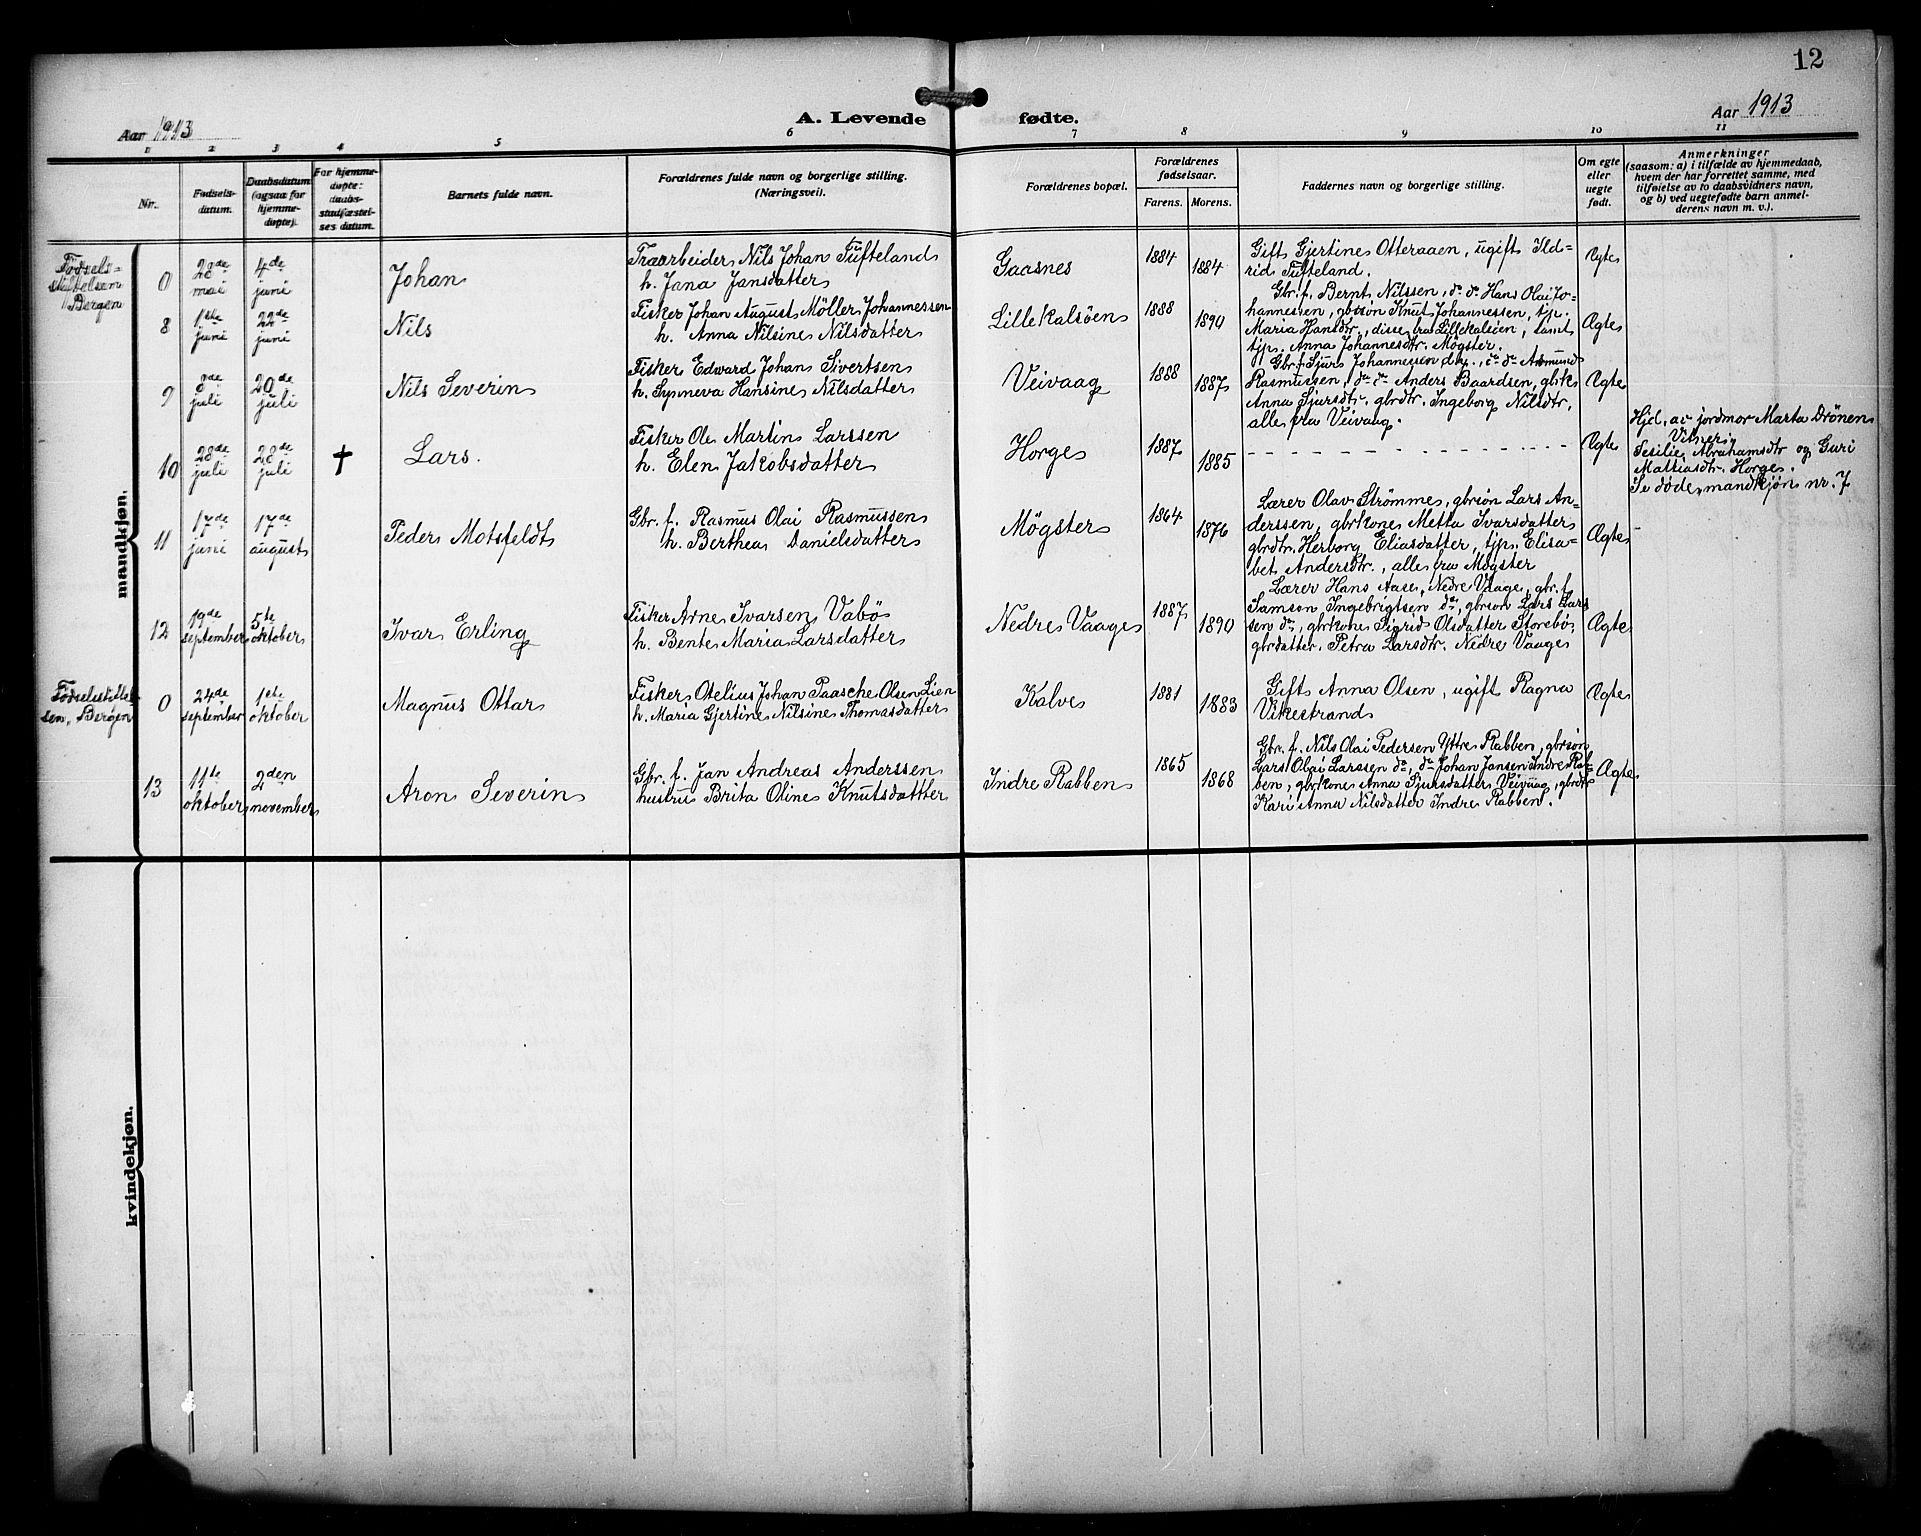 12
Aar 1913
A. Levende fødte.
Aar 1913
1 2 3 4 5 6 7 8 9 10 11
Nr.
Fødsels-
datum.
Daabsdatum
(ogsaa for
hjemme-
døpte).
For hjemme-
døpte:
daabs-
stadfæstel-
ses datum.
Barnets fulde navn.
Forældrenes fulde navn og borgerlige stilling.
(Næringsvei).
Forældrenes bopæl.
Forældrenes
fødselsaar.
Farens. Morens.
Faddernes navn og borgerlige stilling.
Om egte
eller
uegte
født.
Anmerkninger
(saasom: a) i tilfælde av hjemmedaab,
hvem der har forrettet samme, med
tilføielse av to daabsvidners navn,
og b) ved uegtefødte barn anmel-
derens navn m. v.).
mandkjøn.
Fødsels-
stiftelsen
Bergen
0
28de
mai
4de
juni
Johan
Træarbeider Nils Johan Tufteland
h. Jana Jansdatter
Gaasnes
1884
1884
Gift Gjertine Otteraaen, ugift Ild-
rid Tufteland.
Ægte
8
1ste
juni
22de
juni
Nils
Fisker Johan August Möller Johannessen
h. Anna Nilsine Nilsdatter
Lillekalsöen
1888
1890
Gbr. f. Bernt Nilssen, do do Hans Olai Jo-
hannessen, gbrsön Knut Johannessen, tjp.
Maria Hansdtr., disse fra Lillekalsöen, samt
tjp. Anna Johannesdtr. Møgster.
Ægte
9
3de
juli
20de
juli
Nils Severin
Fisker Edward Johan Sivertsen
h. Synneva Hansine Nilsdatter
Veivaag
1888
1887
Gbr. f. Sjurs Johannessen do do Asmund
Rasmussen, do do Anders Baardsen, gbrk.
Anna Sjursdtr. gbrdtr. Ingeborg Nilsdtr.
alle fra Veivaag.
Ægte
10
28de
juli
28de
juli
✝
Lars.
Fisker Ole Martin Larssen
h. Elen Jakobsdatter
Horge
1887
1885
- - - - - - - - - - - - - - -
Ægte
Hjd. av jordmor Marta Drönen
Vitner:
Sesilie Abrahamsdtr og Guri
Mattiasdtr. Horge.
Se döde, mandkjøn nr. 7
11
17de
juni
17de
august
Peder Motsfeldt
Gbr. f. Rasmus Olai Rasmussen
h. Berthea Danielsdatter
Møgster
1864
1876
Lærer Olav Strömme, gbrsön Lars An-
derssen, gbrkone Metta Ivarsdatter
gbrdtr. Herborg Eliasdatter, tjp. Elisa-
bet Andersdtr., alle fra Møgster
Ægte
12
19de
september
5te
oktober
Ivar Erling
Fisker Arne Ivarsen Vabö
h. Bente Maria Larsdatter
Nedre Vaage
1887
1890
Lærer Hans Aase, Nedre Vaage, gbr. f.
Samson Ingebrigtsen do, gbrsön Lars Lars
sen do, gbrkone Sigrid Olsdatter Storebö,
gbrdatter. Petra Larsdtr. Nedre Vaage
Ægte
Fødselsstiftel-
sen, Bergen
0
24de
september
1ste
oktober
Magnus Ottar
Fisker Otelius Johan Paasche Olsen Lien
h. Maria Gjertine Nilsine Thomasdatter
Kalve
1881
1883
Gift Anna Olsen, ugift Ragna
Vikestrand
Ægte
13
11te
oktober
2den
november
Aron Severin
Gbr. f. Jan Andreas Anderssen
hustru Brita Oline Knutsdatter
Indre Rabben
1865
1868
Gbr. f. Nils Olai Pedersen Yttre Rabben, gbrsön
Lars Olai Larssen do, do Johan Jansen Indre Rab-
ben, gbrkone Anna Sjursdatter Veivaag, gbrdtr
Kari Anna Nilsdatter Indre Rabben.
Ægte
kvindekjøn.